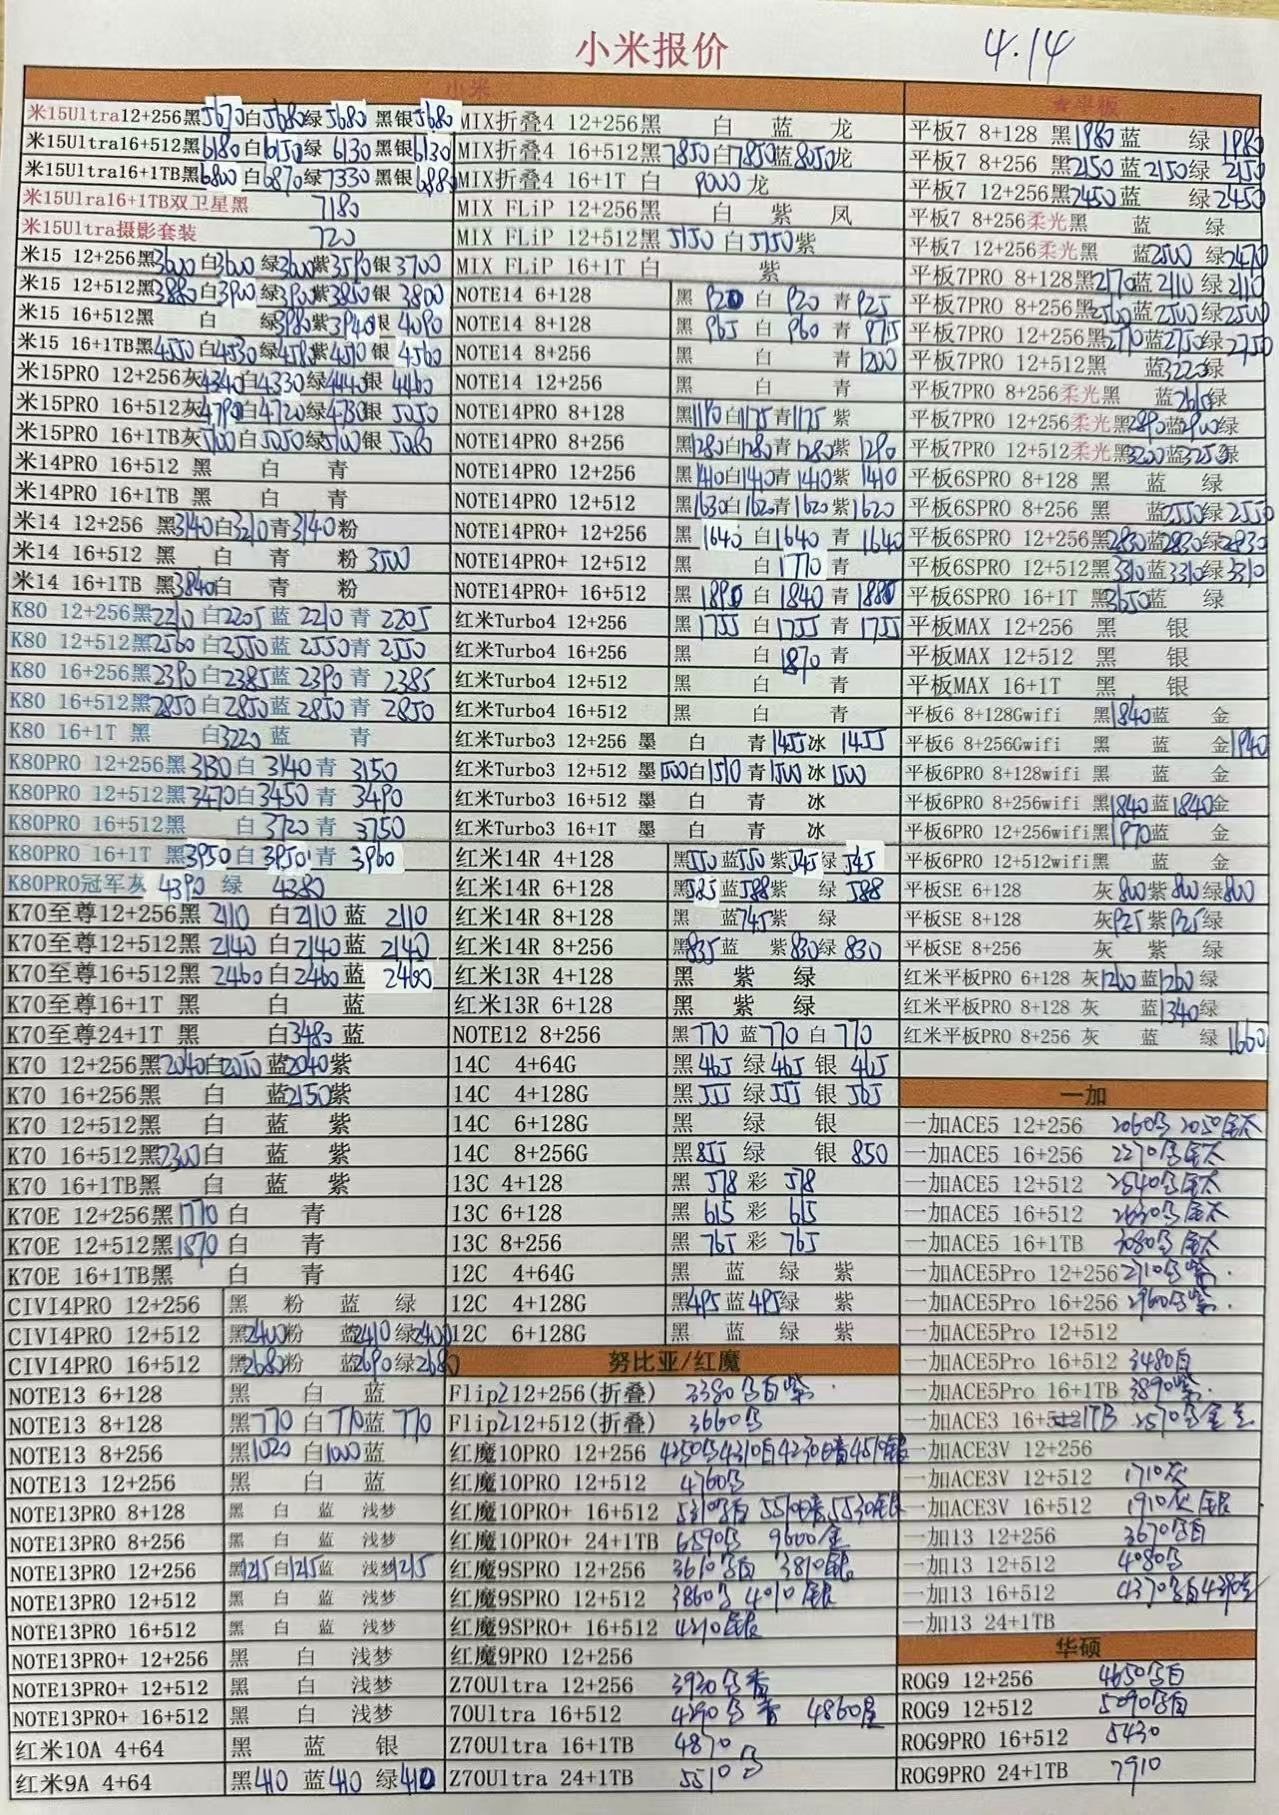 小米报价 4.14
小米
米15Ultra12+256黑5670白5680绿5680 黑银5680
米15Ultra16+512黑6180白6150绿 6130 黑银6130
米15Ultra16+1TB黑6800 白6870绿7330 黑银688
米15Ulra16+1TB双卫星黑 7180
米15Ultra摄影套装 720
米15 12+256黑3600白3600 绿3600紫3590银 3700
米15 12+512黑3880白3900 绿3900紫3850银 3800
米15 16+512黑 白 绿3980紫3940银 4090
米15 16+1TB黑4550 白4530绿4585紫4570 银 4560
米15PRO 12+256灰4340白4330绿4440银 4460
米15PRO 16+512灰4790白4720绿4730银 5050
米15PRO 16+1TB灰5100白5050绿5100银 5080
米14PRO 16+512 黑 白 青
米14PRO 16+1TB 黑 白 青
米14 12+256 黑3140白3210青3140粉
米14 16+512 黑 白 青 粉 3500
米14 16+1TB 黑3840白 青 粉
K80 12+256黑2210 白2205 蓝 2210 青 2205
K80 12+512黑2560 白2550蓝 2550青 2550
K80 16+256黑2390 白2385蓝 2390 青 2385
K80 16+512黑2850 白2850蓝 2850 青 2850
K80 16+1T 黑 白3220 蓝 青
K80PRO 12+256黑 3130白 3140 青 3150
K80PRO 12+512黑3470白3450 青 3490
K80PRO 16+512黑 白 3720 青 3750
K80PRO 16+1T 黑3950 白 3950 青 3960
K80PRO冠军灰 4390 绿 4380
K70至尊12+256黑 2110 白2110 蓝 2110
K70至尊12+512黑 2140 白2140蓝 2140
K70至尊16+512黑 2460 白2460蓝 2480
K70至尊16+1T 黑 白 蓝
K70至尊24+1T 黑 白3480蓝
K70 12+256黑2040白2050 蓝2040紫
K70 16+256黑 白 蓝2150紫
K70 12+512黑 白 蓝 紫
K70 16+512黑2300白 蓝 紫
K70 16+1TB黑 白 蓝 紫
K70E 12+256黑1770 白 青
K70E 12+512黑1870 白 青
K70E 16+1TB黑 白 青
CIVI4PRO 12+256 黑 粉 蓝 绿
CIVI4PRO 12+512 黑2400粉 蓝2410绿2400
CIVI4PRO 16+512 黑2680粉 蓝2690绿2680
NOTE13 6+128 黑 白 蓝
NOTE13 8+128 黑 770 白 770蓝 770
NOTE13 8+256 黑1020 白1000蓝
NOTE13 12+256 黑 白 蓝
NOTE13PRO 8+128 黑 白 蓝 浅梦
NOTE13PRO 8+256 黑 白 蓝 浅梦
NOTE13PRO 12+256 黑1215白1215蓝 浅梦1215
NOTE13PRO 12+512 黑 白 蓝 浅梦
NOTE13PRO 16+512 黑 白 蓝 浅梦
NOTE13PRO+ 12+256 黑 白 浅梦
NOTE13PRO+ 12+512 黑 白 浅梦
NOTE13PRO+ 16+512 黑 白 浅梦
红米10A 4+64 黑 蓝 银
红米9A 4+64 黑410 蓝410 绿410
MIX折叠4 12+256黑 白 蓝 龙
MIX折叠4 16+512黑7850白7850蓝8050龙
MIX折叠4 16+1T 白 9000 龙
MIX FLiP 12+256黑 白 紫 凤
MIX FLiP 12+512黑 5150 白5150紫
MIX FLiP 16+1T 白 紫
NOTE14 6+128 黑 920 白 920 青 925
NOTE14 8+128 黑 965 白 960 青 975
NOTE14 8+256 黑 白 青1200
NOTE14 12+256 黑 白 青
NOTE14PRO 8+128 黑1190白1175青1175 紫
NOTE14PRO 8+256 黑1280白1280青1280紫 1290
NOTE14PRO 12+256 黑1410白1410青1410紫 1410
NOTE14PRO 12+512 黑1630白1620青1620紫1620
NOTE14PRO+ 12+256 黑1640 白1640 青 1640
NOTE14PRO+ 12+512 黑 白1770青
NOTE14PRO+ 16+512 黑1890 白 1840 青1880
红米Turbo4 12+256 黑1755 白1755 青 1755
红米Turbo4 16+256 黑 白1870 青
红米Turbo4 12+512 黑 白 青
红米Turbo4 16+512 黑 白 青
红米Turbo3 12+256 墨 白 青1455冰 1455
红米Turbo3 12+512 墨1500白1510青1500冰 1500
红米Turbo3 16+512 墨 白 青 冰
红米Turbo3 16+1T 墨 白 青 冰
红米14R 4+128 黑550蓝550 紫545绿 545
红米14R 6+128 黑585 蓝588紫 绿 588
红米14R 8+128 黑 蓝745紫 绿
红米14R 8+256 黑835蓝 紫830绿 830
红米13R 4+128 黑 紫 绿
红米13R 6+128 黑 紫 绿
NOTE12 8+256 黑770 蓝770 白 770
14C 4+64G 黑465 绿465 银 465
14C 4+128G 黑555 绿555 银 565
14C 6+128G 黑 绿 银
14C 8+256G 黑855 绿 银 850
13C 4+128 黑 578 彩 578
13C 6+128 黑 615 彩 615
13C 8+256 黑 765 彩 765
12C 4+64G 黑 蓝 绿 紫
12C 4+128G 黑495蓝495绿 紫
12C 6+128G 黑 蓝 绿 紫
努比亚/红魔
Flip212+256(折叠) 3380 白紫
Flip212+512(折叠) 3660
红魔10PRO 12+256 4250 4310白4230 4510银
红魔10PRO 12+512 4760
红魔10PRO+ 16+512 5310 白 5510 5530银
红魔10PRO+ 24+1TB 6590 9600金
红魔9SPRO 12+256 3610 白 3810银
红魔9SPRO 12+512 3860 4010银
红魔9SPRO+ 16+512 4210银
红魔9PRO 12+256
Z70Ultra 12+256 3930 青
70Ultra 16+512 4290 青 4860星
Z70Ultra 16+1TB 4870
Z70Ultra 24+1TB 5510
平板
平板7 8+128 黑1980蓝 绿 1980
平板7 8+256 黑2150蓝 2150绿 2150
平板7 12+256 黑2450蓝 绿2450
平板7 8+256柔光黑 蓝 绿
平板7 12+256柔光黑 蓝2500 绿2470
平板7PRO 8+128黑2170蓝2110 绿2110
平板7PRO 8+256黑2500蓝2500绿2500
平板7PRO 12+256黑2770蓝2750绿2750
平板7PRO 12+512黑 蓝3220绿
平板7PRO 8+256柔光黑 蓝2615绿
平板7PRO 12+256柔光黑2890蓝2900绿
平板7PRO 12+512柔光黑3200蓝3250绿
平板6SPRO 8+128 黑 蓝 绿
平板6SPRO 8+256 黑 蓝2550绿2550
平板6SPRO 12+256黑2830蓝2830绿2830
平板6SPRO 12+512黑3310蓝3310绿3310
平板6SPRO 16+1T 黑3650蓝 绿
平板MAX 12+256 黑 银
平板MAX 12+512 黑 银
平板MAX 16+1T 黑 银
平板6 8+128Gwifi 黑1840蓝 金
平板6 8+256Gwifi 黑 蓝 金1940
平板6PRO 8+128wifi 黑 蓝 金
平板6PRO 8+256wifi 黑1840蓝1840金
平板6PRO 12+256wifi黑1970蓝 金
平板6PRO 12+512wifi黑 蓝 金
平板SE 6+128 灰 800紫 800绿800
平板SE 8+128 灰925 紫925绿
平板SE 8+256 灰 紫 绿
红米平板PRO 6+128 灰1260 蓝1260 绿
红米平板PRO 8+128 灰 蓝1340绿
红米平板PRO 8+256 灰 蓝 绿 1660
一加
一加ACE5 12+256 2060 2050 钛
一加ACE5 16+256 2270 钛
一加ACE5 12+512 2540 钛
一加ACE5 16+512 2630 钛
一加ACE5 16+1TB 3080 钛
一加ACE5Pro 12+256 2710 紫
一加ACE5Pro 16+256 2960 紫
一加ACE5Pro 12+512
一加ACE5Pro 16+512 3480白
一加ACE5Pro 16+1TB 3890紫
一加ACE3 16+512 1TB 2570 金
一加ACE3V 12+256
一加ACE3V 12+512 1710灰
一加ACE3V 16+512 1910灰 银
一加13 12+256 3670 白
一加13 12+512 4080
一加13 16+512 4370 白
一加13 24+1TB
华硕
ROG9 12+256 4650 白
ROG9 12+512 5090 白
ROG9PRO 16+512 5430
ROG9PRO 24+1TB 7910